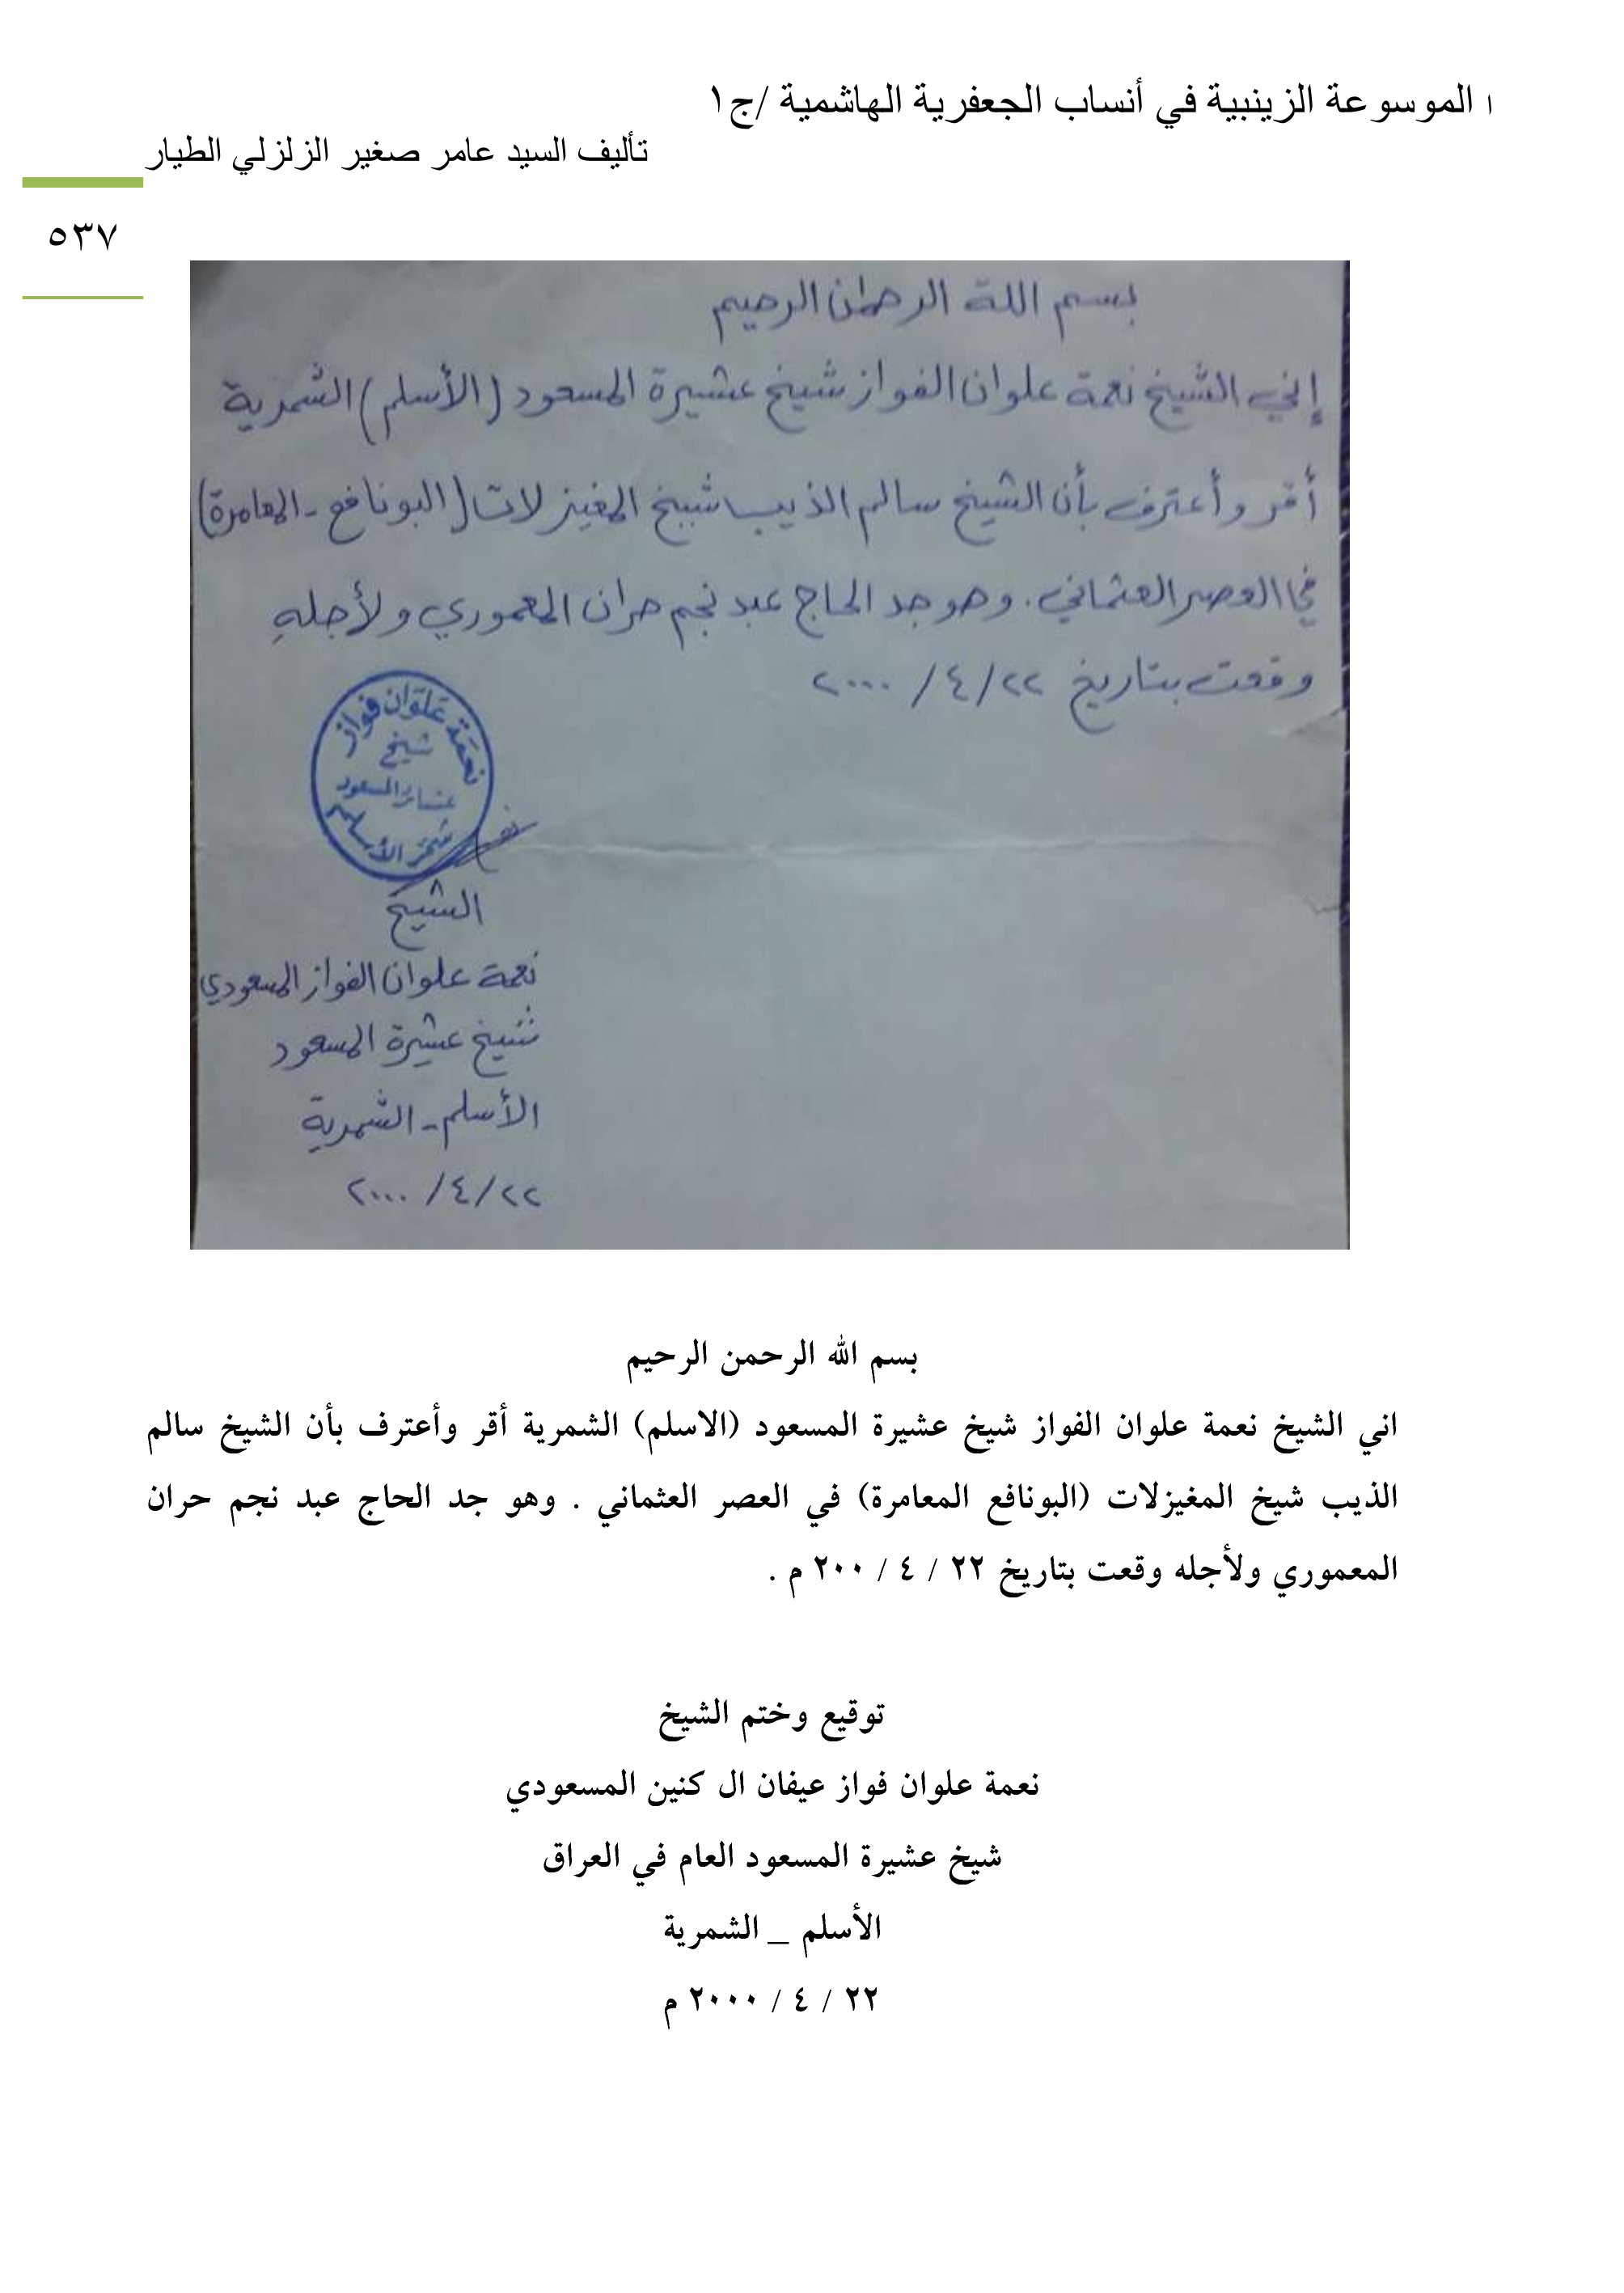 ا الموسوعة الزينبية في أنساب الجعفرية الهاشمية /ج١
تأليف السيد عامر صغير الزلزلي الطيار
٥٣٧
بسم اللة الرحمان الرحيم
إني الشيخ نعمة علوان الفواز شيخ عشيرة المسعود (الأسلم) الشمرية
أقر وأعترف بأن الشيخ سالم الذيب شيخ المغيزلات (البونافع - المعامرة)
في العصر العثماني. وهو جد الحاج عبد نجم حران المعموري ولأجلهِ
وقعت بتاريخ ٢٢/ ٤/ ٢٠٠٠
نعمة علوان فواز
شيخ
عشائر المسعود
شمر الأسلم
الشيخ
نعمة علوان الفواز المسعودي
شيخ عشيرة المسعود
الأسلم - الشمرية
٢٢/ ٤/ ٢٠٠٠
بسم الله الرحمن الرحيم
اني الشيخ نعمة علوان الفواز شيخ عشيرة المسعود (الاسلم) الشمرية أقر وأعترف بأن الشيخ سالم
الذيب شيخ المغيزلات (البونافع المعامرة) في العصر العثماني . وهو جد الحاج عبد نجم حران
المعموري ولأجله وقعت بتاريخ ٢٢ / ٤ / ٢٠٠ م .
توقيع وختم الشيخ
نعمة علوان فواز عيفان ال كنين المسعودي
شيخ عشيرة المسعود العام في العراق
الأسلم _ الشمرية
٢٢ / ٤ / ٢٠٠٠ م